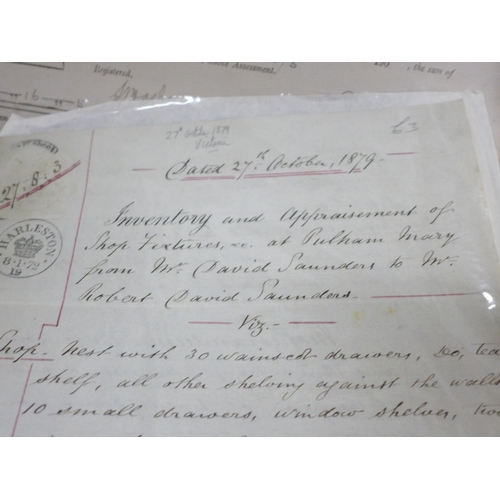 Assessment.
, the sum of
Registered.
16
27th October 1879
Victoria
£3
Dated 27th October, 1879.
27.8.3
HARLESTON
Inventory and Appraisement of
Shop Fixtures, &c. at Pulham Mary
from Mr. David Saunders to Mr.
Robert David Saunders.
Viz.
Shop. Nest with 30 wainscot drawers, Do, tea
shelf, all other shelving against the walls
10 small drawers, window shelves, two